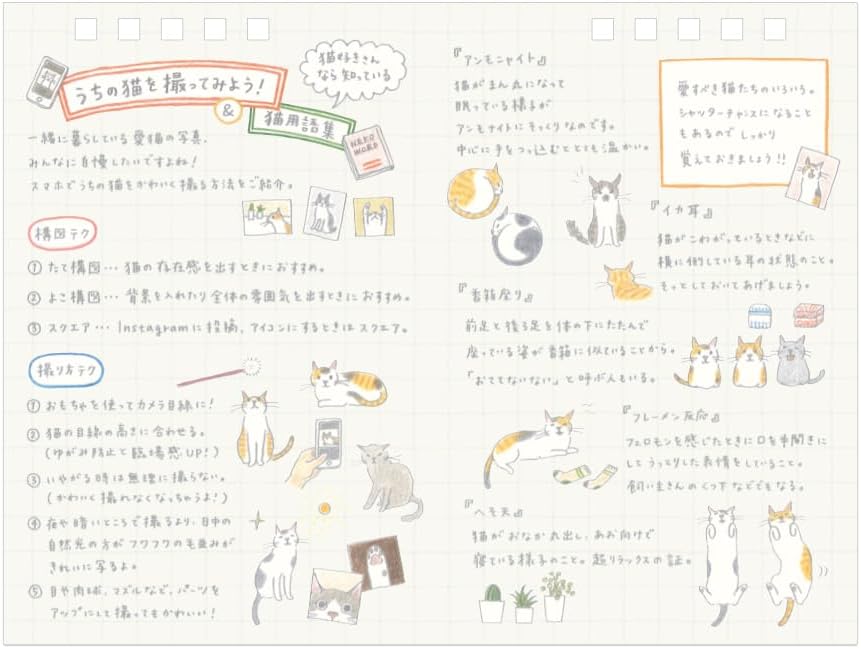 うちの猫を撮ってみよう！
&
猫用語集
猫好きさん
なら知っている
NEKO
WORD
一緒に暮らしている愛猫の写真、
みんなに自慢したいですよね！
スマホでうちの猫をかわいく撮る方法をご紹介。
構図テク
① たて構図… 猫の存在感を出すときにおすすめ。
② よこ構図… 背景を入れたり全体の雰囲気を出すときにおすすめ。
③ スクエア… Instagramに投稿、アイコンにするときはスクエア。
撮り方テク
① おもちゃを使ってカメラ目線に！
② 猫の目線の高さに合わせる。
(ゆがみ防止と臨場感UP！)
③ いやがる時は無理に撮らない。
(かわいく撮れなくなっちゃうよ！)
④ 夜や暗いところで撮るより、日中の
自然光の方がフワフワの毛並みが
きれいに写るよ。
⑤ 目や肉球、マズルなど、パーツを
アップにして撮ってもかわいい！
『アンモニャイト』
猫がまん丸になって
眠っている様子が
アンモナイトにそっくりなのです。
中心に手をつっ込むととても温かい。
愛すべき猫たちのいろいろ。
シャッターチャンスになること
もあるのでしっかり
覚えておきましょう！！
『イカ耳』
猫がこわがっているときなどに
横に倒している耳の状態のこと。
そっとしておいてあげましょう。
『香箱座り』
前足と後ろ足を体の下にたたんで
座っている姿が香箱に似ていることから。
「おててないない」と呼ぶ人もいる。
『フレーメン反応』
フェロモンを感じたときに口を半開きに
してうっとりした表情をしていること。
飼い主さんのくつ下などでもなる。
『へそ天』
猫がおなか丸出し、あお向けで
寝ている様子のこと。超リラックスの証。